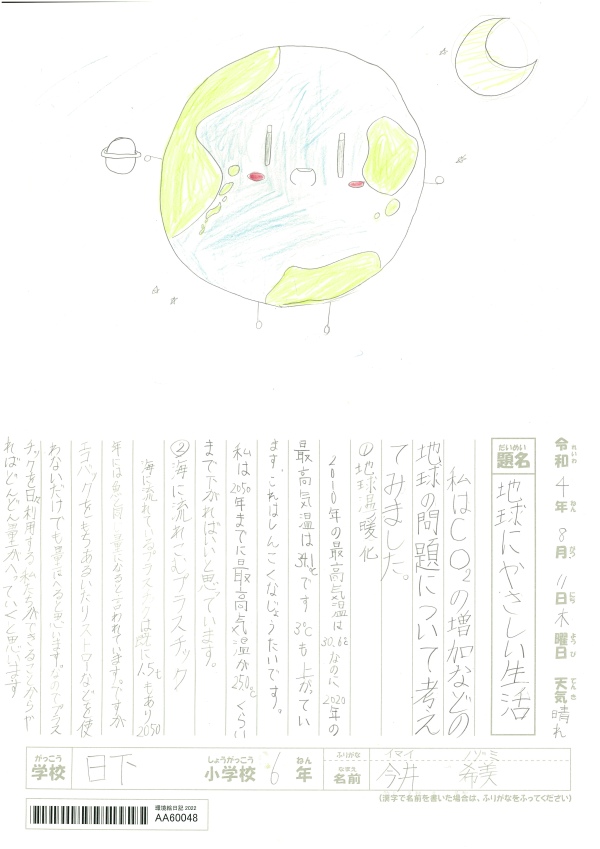 令和4年8月11日木曜日 天気晴れ
れいわ ねん がつ にち ようび てんき
だいめい
題名 地球にやさしい生活
私はCO2の増加などの
地球の問題について考え
てみました。
①地球温暖化
2010年の最高気温は30.6℃なのに、2020年の
最高気温は34.1℃です 3℃も上がってい
ます。これはしんこくなじょうたいです。
私は2050年までに最高気温が25.0℃くらい
まで下がればいいと思っています。
②海に流れこむプラスチック
海に流れているプラスチックは 1.5tもあり2050
年には魚 量になると言われています。ですが
エコバッグをもちあるいたりストローなどを使
わないだけでも 思います。なのでプラス
チックを 利用する 私たちができることからや
ればどんどん っていくと思います
がっこう
学校 日下
しょうがっこう
小学校 6 ねん
年
ふりがな イマイ ノゾミ
なまえ
名前 今井 希美
(漢字で名前を書いた場合は、ふりがなをふってください)
環境絵日記 2022
AA60048